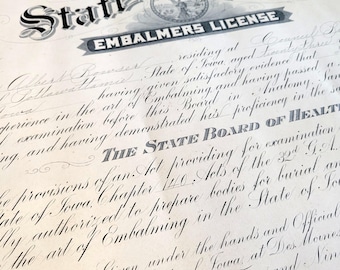 State
EMBALMERS LICENSE
residing at
State of Iowa, aged
having given satisfactory evidence that
experience in the art of Embalming and having passed a
examination before this Board in Anatomy, San
ing, and having demonstrated his proficiency in the sa
THE STATE BOARD OF HEALT
he provisions of an Act providing for examination
tate of Iowa, Chapter Acts of the G. A.
lly authorized to prepare bodies for burial an
the art of Embalming in the State of Io
Given under the hands and Official
of Iowa, at Des Moines
and Nin